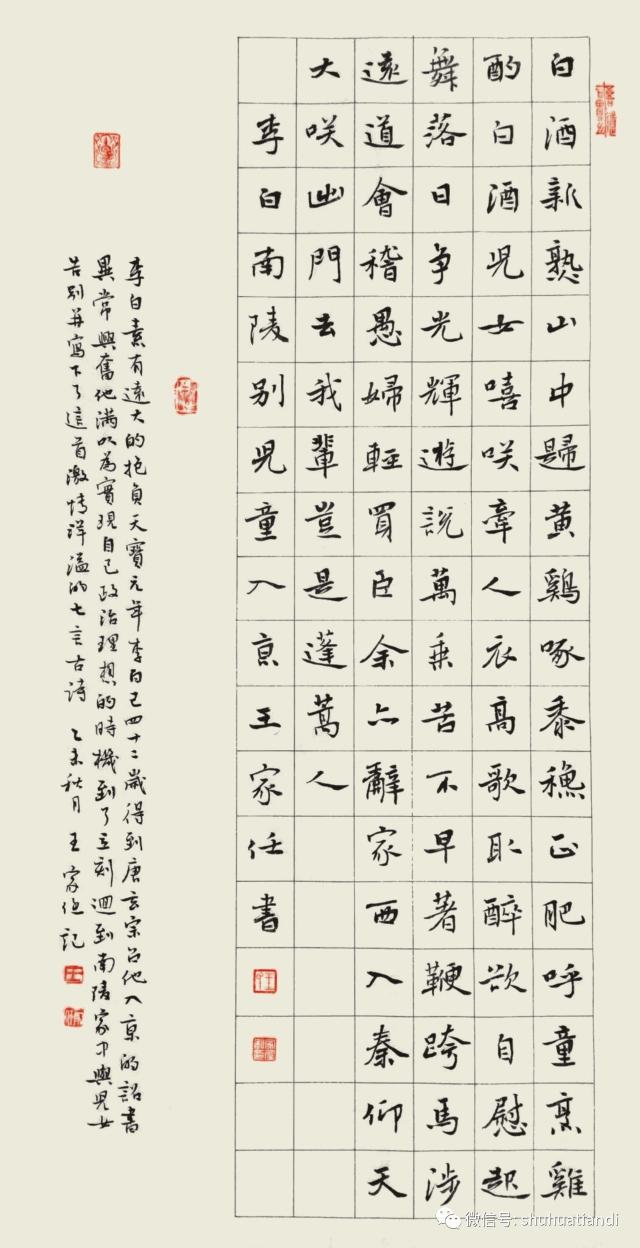 白酒新熟山中歸黄鷄啄黍穐正肥呼童烹雞
酌白酒兒女嘻咲牽人衣髙歌取醉欲自慰起
舞落日争光輝遊說萬乗苦不早著鞭跨馬涉
逺道會稽愚婦輕買臣余亦辭家西入秦仰天
大咲出門去我輩豈是蓬蒿人
李白南陵别兒童入京王家任書
李白素有遠大的抱負天寶元年李白已四十二歲得到唐玄宗召他入京的詔書
異常興奮他满以為實現自己政治理想的時機到了立刻迴到南陵家中與兒女
告别並寫下了這首激情洋溢的七言古詩 乙未秋月 王家任記
微信号: shuhuatiandi